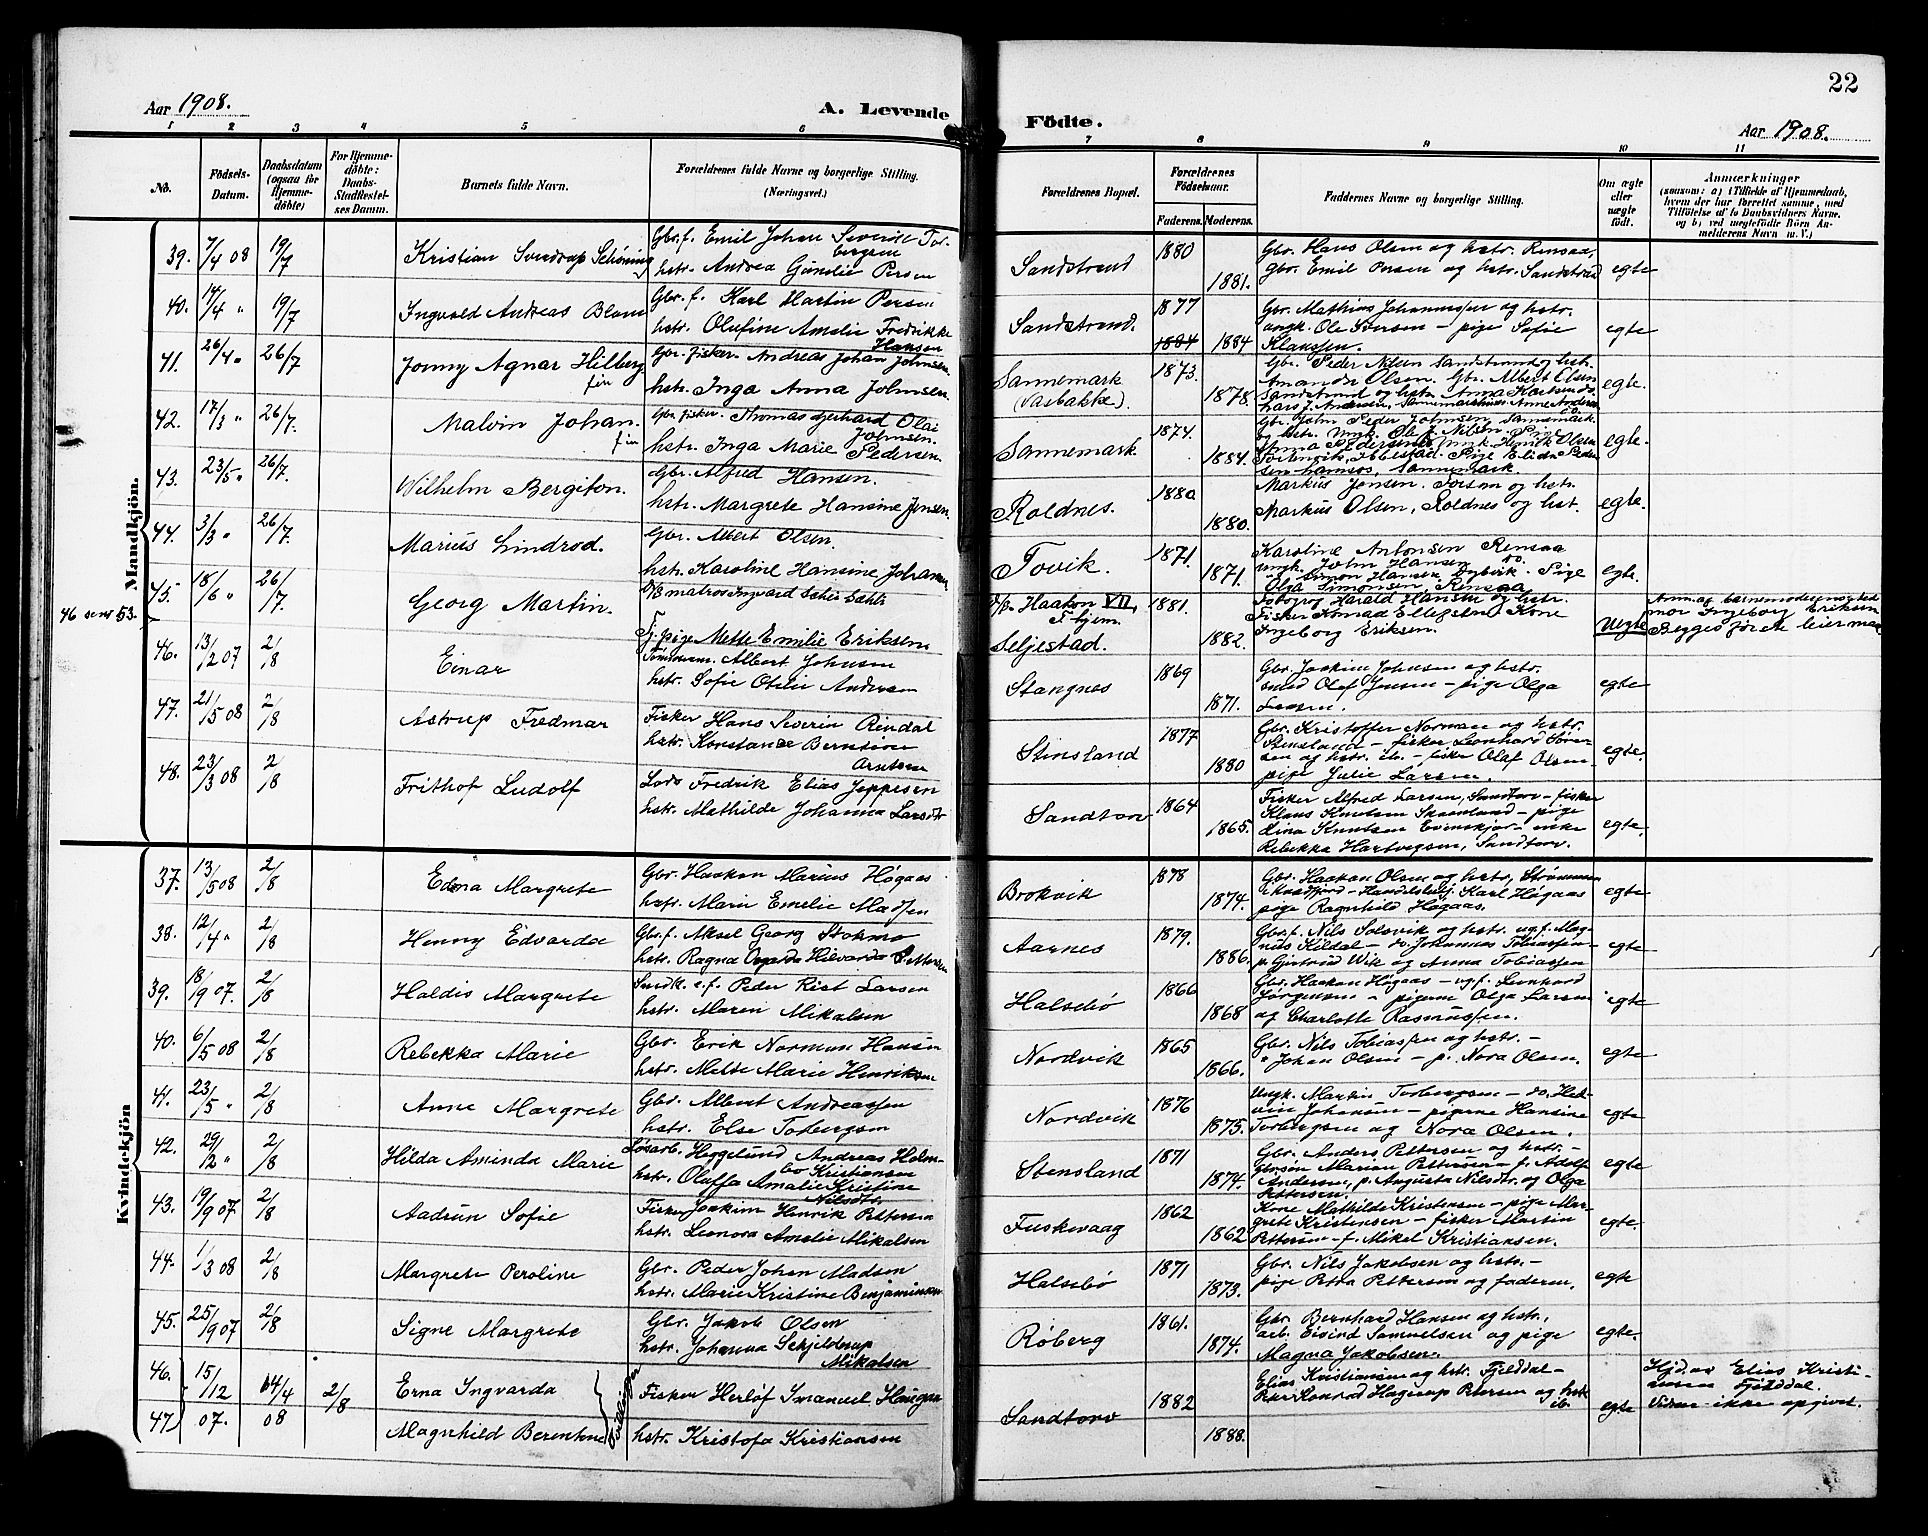 22
Aar 1908.
A. Levende
Födte.
Aar 1908.
1 2 3 4 5 6 7 8 9 10 11
No.
Födsels-
Datum.
Daabsdatum
(ogsaa for
Hjemme-
döbte)
For Hjemme-
döbte:
Daabs-
Stadfæstel-
ses Datum.
Barnets fulde Navn.
Forældrenes fulde Navne og borgerlige Stilling.
(Næringsvei.)
Forældrenes Bopæl.
Forældrenes
Födselsaar.
Faderens. Moderens.
Faddernes Navne og borgerlige Stilling.
Om ægte
eller
uægte
födt.
Anmærkninger
(saasom: a) i Tilfælde af Hjemmedaab,
hvem der har forrettet samme, med
Tilföielse af to Daabsvidners Navne,
og b) ved uegtefödte Börn An-
melderens Navn m. V.)
Mandkjön.
39. 7/4 08 19/7 Kristian Sverdrup Schöning
Gbr. f. Emil Johan Severin Tor-
bergsen
hstr. Andrea Gunelie Persen
Sandstrand 1880 1881.
Gbr. Hans Olsen og hstr. Rensaa,
Gbr. Emil Persen og hstr. Sandstrand
egte
40. 14/4 " 19/7 Ingvald Andreas Blom
Gbr. f. Karl Martin Persen
hstr. Olufine Amalie Fredrikke
Hansen
Sandstrand. 1877 1884 1884
Gbr. Mathias Johannessen og hstr.
ungk. Ole Iversen - pige Sofie
Klaussen.
egte
41. 26/4 " 26/7 Jonny Agnar Hilberg
fin
Gbr. fisker. Andreas Johan Johnsen
hstr. Inga Anna Johnsen
Sannemark
(Vasbakke). 1873. 1878.
Gbr. Peder Nilsen Sandstrand og hstr.
Amanda Olsen. Gbr. Albert Olsen
Sandstrand og hstr. Anna
egte.
42. 17/3 " 26/7. Malvin Johan.
fin
Gbr. fisker. Thomas Gerhard Olai
Johnsen.
hstr. Inga Marie Pedersen
Sannemark 1874. 1884.
Gbr. John Peder Johnsen Sannemark
og hstr. Ungk. Olaf Nilsen. Pige
Anna Pedersen. Ungk. Henrik Olsen
Sannemark.
egte.
43. 23/5 " 26/7. Wilhelm Bergiton.
Gbr. Alfred Hansen.
hstr. Margrete Hansine Jensen.
Roldnes. 1880 1880.
Markus Jensen. Forsom og hstr.
Markus Olsen, Roldnes og hst.
egte.
44. 3/3 " 26/7. Marius Lindrod.
Gbr. Albert Olsen.
hstr. Karoline Hansine Johansen
Tovik. 1871. 1871.
Karoline Antonsen Rensaa
ungk. John Hansen do.
" Simon Hansen Dybvik. Pige
Olga Simonsen Rensaa
egte.
46 senr 53.
45. 18/6 " 26/7 Georg Martin.
D/S matros Ingvard
Tj. pige Mette Emilie Eriksen
D/S. Haakon VII,
Thjem.
Seljestad. 1881. 1882.
Fotogrf Harald Hansen og hstr.
Fisker Konrad Ellefsen, Kone
Ingeborg Eriksen.
uegte
Anm. ag barnemoderens sted
mor Ingeborg Eriksen
Begges förste leiermaal
46. 13/2 07 2/8 Einar
Tömmerm. Albert Johnsen
hstr. Sofie Otelie Andersen
Stangnes 1869 1871.
Gbr. Joakim Johnsen og hstr.
smed Olaf Jensen - pige Olga
Larsen.
egte
47. 21/5 08 2/8 Astrup Fredmar
Fisker Hans Severin Rindal
hstr. Konstanse Berntine
Arntsen
Stensland 1877 1880
Gbr. Kristoffer Norman og hstr.
Stensland - fisker Leonhard Sören-
sen og hstr. ib. - fisker Olaf Olsen
pige Julie Larsen.
egte.
48. 23/3 08 2/8 Frithof Ludolf
Lods Fredrik Elias Jeppesen
hstr. Mathilde Johanna Larsdtr
Sandtorv 1864 1865.
Fisker Alfred Larsen, Sandtorv - fisker
Klaus Knutsen Skaanland - pige
Lina Knutsen Evenskjær - enke
Rebekka Hartvigsen, Sandtorv.
egte.
Kvindekjön
37. 13/5 08 2/8 Edna Margrete
Gbr. Haakon Marius Högaas
hstr. Marie Emelie Madsen
Brokvik 1878 1874.
Gbr. Haakon Olsen og hstr, Strömmen
i Kvædfjord - Handelsbetj. Karl Högaas
pige Ragnhild Högaas.
egte
38. 12/4 " 2/8 Henny Edvarda
Gbr. f. Aksel Georg Stokmo
hstr. Ragna Hilvarda Pettersen
Aarnes 1879. 1886.
Gbr. f. Nils Solsvik og hstr. ug. f. Mag-
nus Kildal - do. Johannes Tobiassen -
p. Gjertrud Wik og Anna Tobiassen
egte
39. 18/19 07. 2/8 Haldis Margrete
Smedk. e. f. Peder Rist Larsen
hstr. Maren Mikalsen
Halsebö 1866 1868
Gbr. Haakon Högaas - ug. f. Leonhard
Jörgensen - pigerne Olga Larsen
og Charlotte Rasmussen.
egte
40. 6/5 08 2/8 Rebekka Marie
Gbr. Erik Norman Hansen
hstr. Mette Marie Henriksen
Nordvik 1865 1866.
Gbr. Nils Tobiassen og hstr. -
" Johan Olsen - p. Nora Olsen.
egte
41. 23/5 " 2/8 Anne Margrete
Gbr. Albert Andreassen
hstr. Else Torbergsen
Nordvik 1876 1875.
Ungk. Martin Torbergsen - do. Hed-
vin Johansen - pigerne Hansine
Torbergsen og Nora Olsen.
egte
42. 29/12 " 2/8 Hilda Aminda Marie
Lösarb. Heggelund Andreas Holm-
bo Kristiansen
hstr. Olaffa Amalie Kristine
Nilsdtr.
Stensland 1871 1874.
Gbr. Anders Pettersen og hstr. -
Gbrsön Marian Pettersen - f. Adolf
Andersen, p. Augusta Nilsdtr. og Olga
Pettersen.
egte
43. 19/9 07 2/8 Aadrun Sofie
Fisker Joakim Henrik Pettersen
hstr. Leonora Amalie Mikalsen
Fuskevaag 1862 1862
Kone Mathilde Kristensen - pige Mar-
grete Kristensen - fisker Martin
Pettersen - f. Mikal Kristiansen.
egte.
44. 1/3 08 2/8 Margrete Peroline
Gbr. Peder Johan Madsen
hstr. Marie Kristine Benjaminsen
Halsebö 1871 1873.
Gbr. Nils Jakobsen og hstr. -
pige Petra Pettersen og faderen.
egte
45. 25/9 07 2/8 Signe Margrete
Gbr. Jakob Olsen
hstr. Johanna Schjelderup
Mikalsen
Röberg 1861. 1874.
Gbr. Bernhard Hansen og hstr.,
arb. Eivind Samuelsen og pige
Magna Jakobsen.
egte.
46. 15/12 14/4 2/8 Erna Ingvarda
47. 07. 08 Magnhild Berentine
Tvillinger
Fisker Herlöf Imanuel Haugen
hstr. Kristofa Kristiansen
Sandtorv 1882 1888.
Elias Kristiansen og hstr. Fjelddal -
Peder Konrad Hagerup Petersen og hstr
ib.
egte
Hjd. av Elias Kristi-
ansen Fjelddal.
Vidner ikke opgivet.